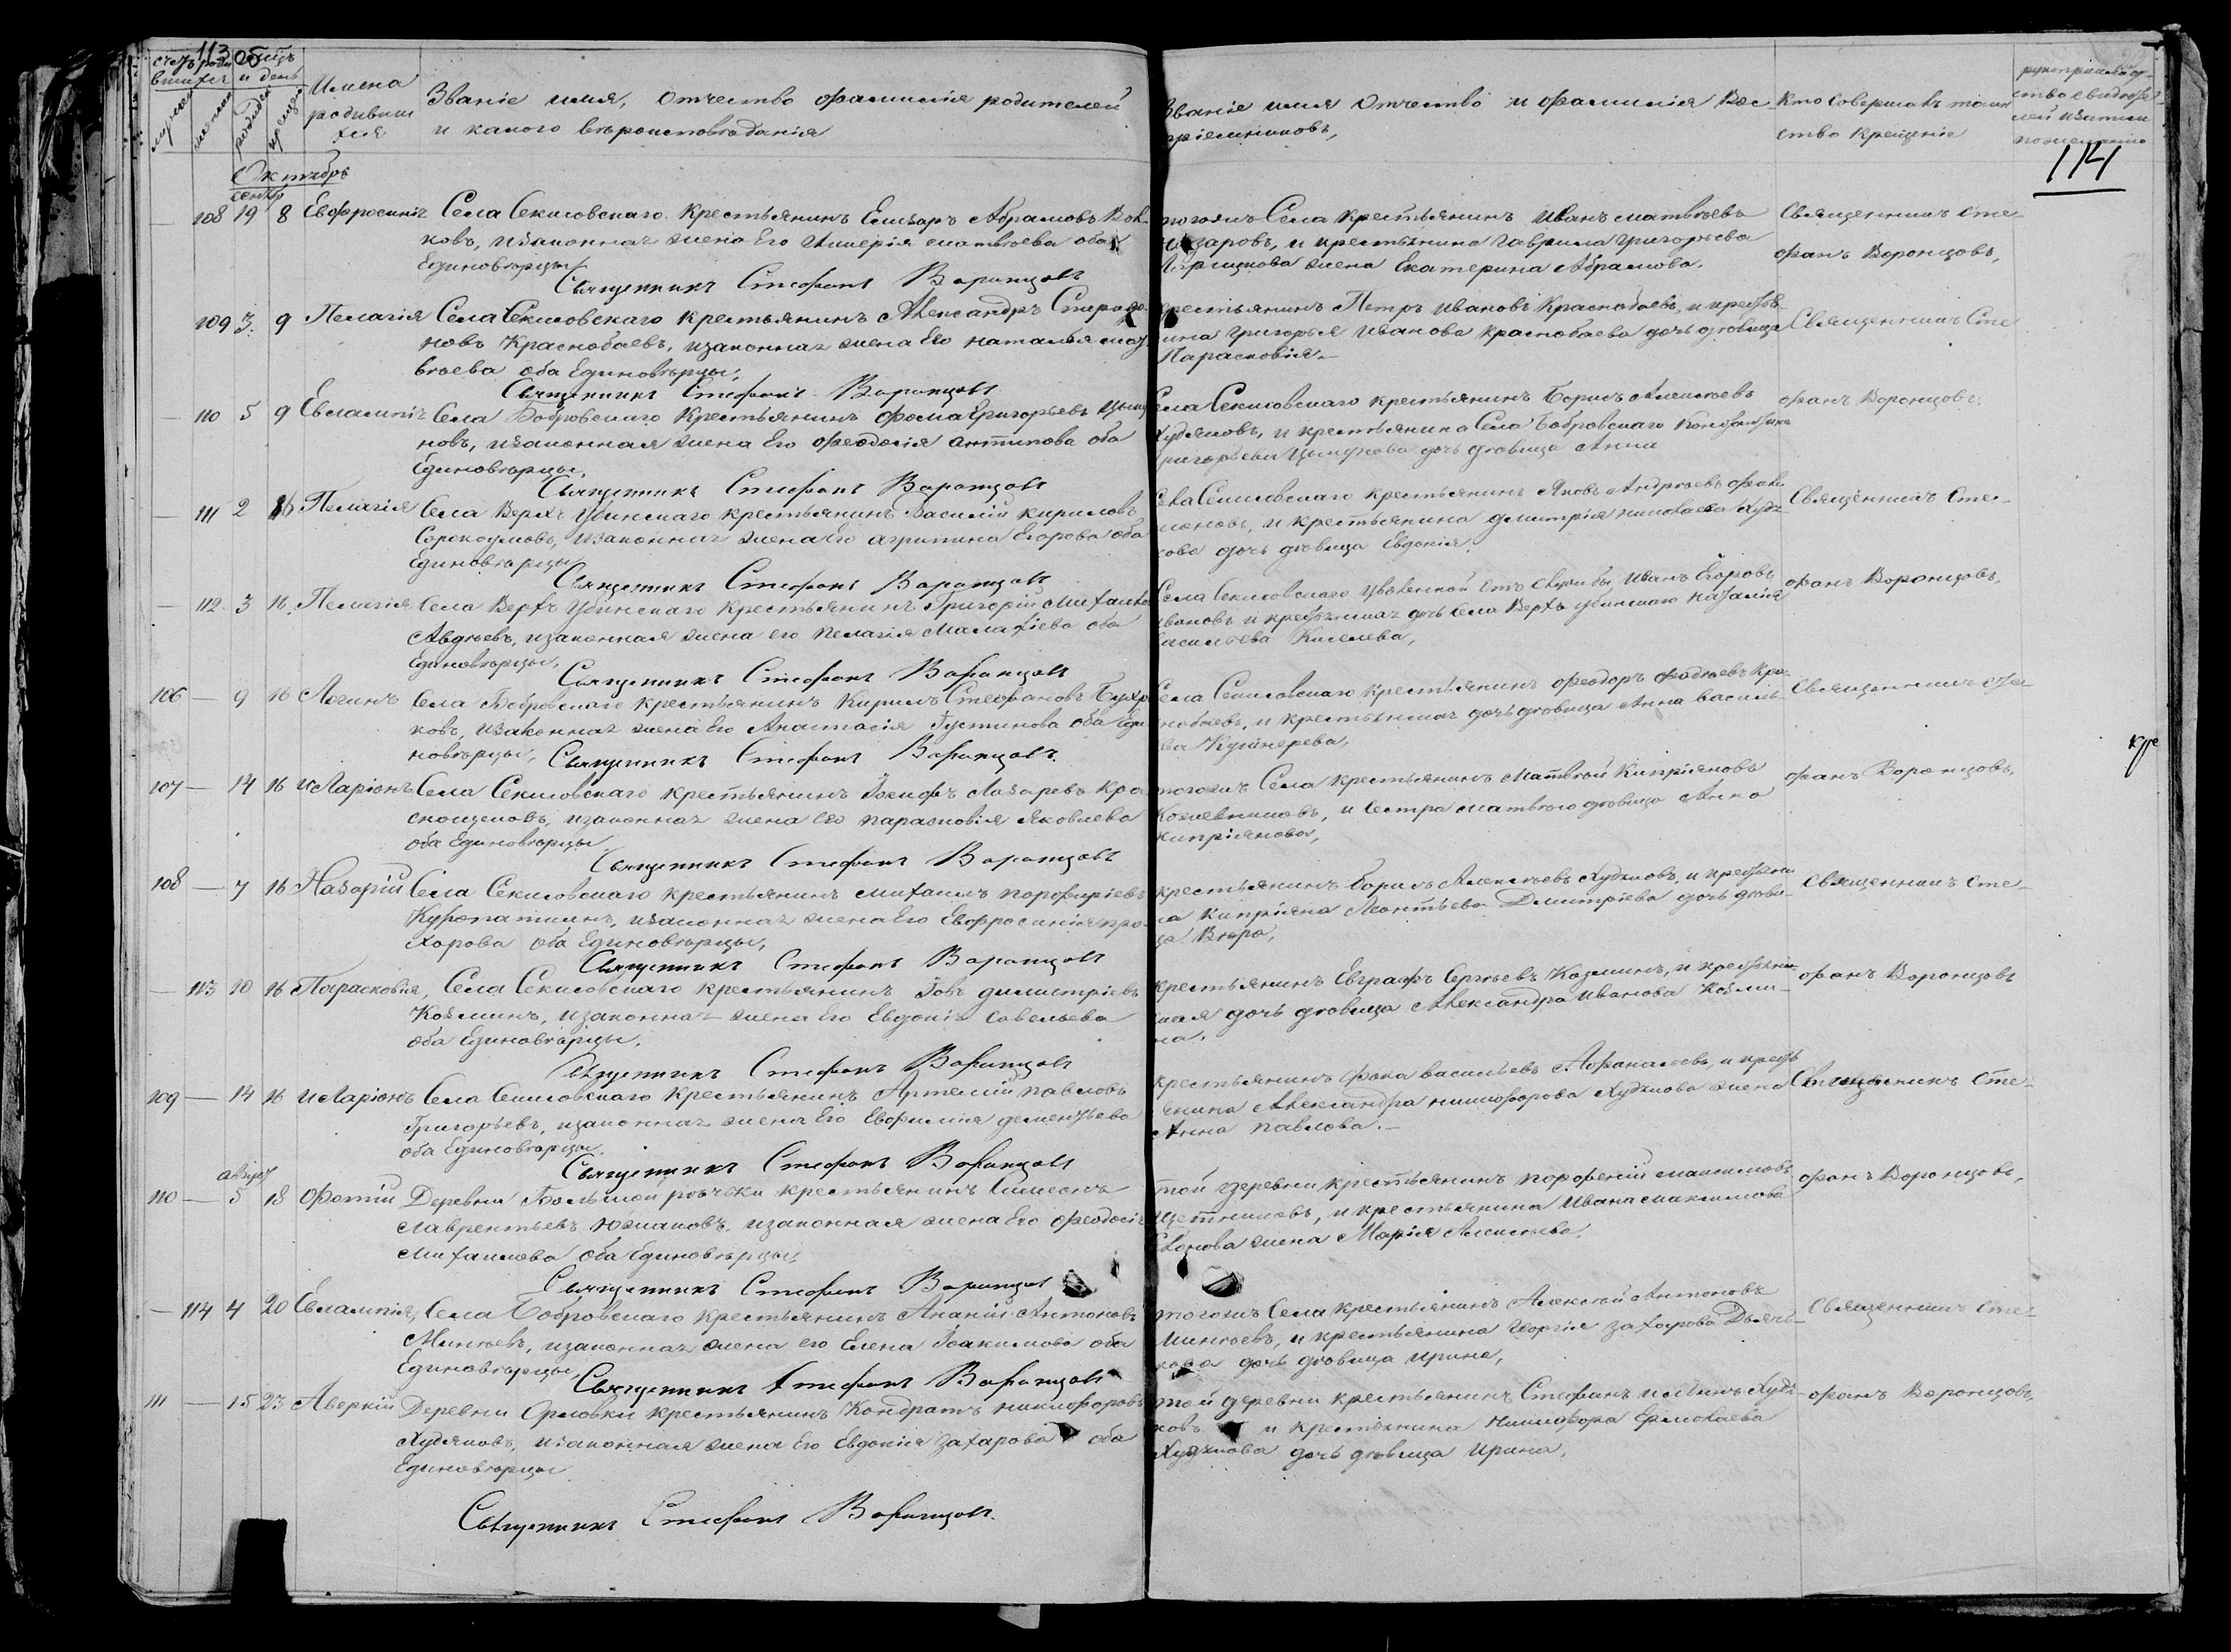 113 об
счетъ роди
вшихся
мужеска
женска
Мѣсяцъ
и день
рожден
крещен
Имена
родивши
хся
Званіе имя, Отчество фамилія родителей
и какого вѣроисповѣданія
Званіе имя Отчество и фамилія Вос
пріемниковъ,
Кто совершалъ таин
ство крещенія
рукоприклад
ство свидѣте
лей
по желанію
114
Октябрь
сентяб
— 108 19 8 Евфросинія Села Секисовскаго крестьянинъ Елизаръ Абрамовъ Вол
ковъ, изаконная жена Его Гликерія матвѣева оба
Единовѣрцы
Священникъ Стефанъ Воронцовъ
тогожъ Села крестьянинъ Иванъ матвѣевъ
и крестьянина гаврила григорьева
жена Екатерина Абрамова.
Священникъ Сте-
фанъ Воронцовъ,
109 3. 9 Пелагія Села Секисовскаго крестьянинъ Александръ Спиридо
новъ Краснобаевъ, изаконная жена Его наталья мат
вѣева оба Единовѣрцы,
Священникъ Стефанъ Воронцовъ
крестьянинъ Петръ Ивановъ Краснобаевъ, и крестья
нина григорья Иванова краснобаева дочь дѣвица
Парасковія.
Священникъ Сте
— 110 5 9 Евлампія Села Бобровскаго Крестьянинъ Фома Григорьевъ
новъ, изаконная жена Его Феодосія антипова оба
Единовѣрцы,
Священникъ Стефанъ Воронцовъ
Села Секисовскаго крестьянинъ Борисъ Алексѣевъ
Худяковъ, и крестьянина Села Бобровскаго Константина
григорьева дочь дѣвица Анна
фанъ Воронцовъ,
— 111 2 16 Пелагія Села Верхъ Убинскаго крестьянинъ Василій кириловъ
Сорокоумовъ, изаконная жена Его агрипина Егорова оба
Единовѣрцы
Священникъ Стефанъ Воронцовъ
Села Секисовскаго крестьянинъ Яковъ Андреевъ
и крестьянина димитрія николаева Худя
кова дочь дѣвица Евдокія.
Священникъ Сте-
— 112. 3 16. Пелагія Села Верхъ Убинскаго крестьянинъ Григорій Михайло
Авдѣевъ, изаконная жена его пелагія Малахіева оба
Единовѣрцы,
Священникъ Стефанъ Воронцовъ
Села Секисовскаго уволенной отъ службы Иванъ Егоровъ
Ивановъ и крестьянская дочь Села Верхъ убинскаго наталія
васильева Киселева,
фанъ Воронцовъ,
106 — 9 16 Логинъ Села Бобровскаго крестьянинъ Кирилъ Стефановъ
ковъ, изаконная жена Его Анастасія Густинова оба Еди
новѣрцы, Священникъ Стефанъ Воронцовъ.
Села Секисовскаго крестьянинъ феодоръ Фадѣевъ Кра
снобаевъ, и крестьянская дочь дѣвица Анна василь
ва
Священникъ Сте-
107 — 14 16 Иларіонъ Села Секисовскаго крестьянинъ Іосифъ Лазаревъ кра
сношековъ, изаконная жена его парасковія Яковлева
оба Единовѣрцы
Священникъ Стефанъ Воронцовъ
тогожъ Села крестьянинъ Матвѣй Кипріяновъ
Кожевниковъ, и Сестра матвѣя дѣвица Анна
кипріянова,
фанъ Воронцовъ,
108 — 7 16 Назарій Села Секисовскаго крестьянинъ михаилъ порфиріевъ
Куропаткинъ, изаконная жена Его Евфросинія про-
хорова оба Единовѣрцы,
Священникъ Стефанъ Воронцовъ
крестьянинъ Борисъ Алексѣевъ Худяковъ, и крестьяни
на кипріяна Леонтьева Дмитріева дочь дѣви-
ца Вѣра,
Священникъ Сте-
— 113 10 16 Парасковія, Села Секисовскаго крестьянинъ Іовъ димитріевъ
Козминъ, изаконная жена Его Евдокія Савельева
оба Единовѣрцы.
Священникъ Стефанъ Воронцовъ
крестьянинъ Евграфъ Сергѣевъ Козминъ, и крестьян
ская дочь дѣвица Александра Иванова Козми-
на.
фанъ Воронцовъ
109 — 14 16 Иларіонъ Села Секисовскаго крестьянинъ Артемій павловъ
Григорьевъ, изаконная жена Его Евфимія дементьева
оба Единовѣрцы.
Священникъ Стефанъ Воронцовъ
крестьянинъ Фока васильевъ Афанасьевъ, и кресть
янина Александра никифорова Худякова жена
Анна павлова.—
Священникъ Сте-
август
110 — 5 18 Фотій Деревни Большой рѣчьки крестьянинъ Симеонъ
лаврентьевъ Южаковъ, изаконная жена Его феодосія
Михаилова оба Единовѣрцы.
Священникъ Стефанъ Воронцовъ
той деревни крестьянинъ порфеній максимовъ
и крестьянина Ивана максимова
жена Марія Алексѣева.
фанъ Воронцовъ,
— 114 4 20 Евлампія, Села Бобровскаго Крестьянинъ Ананій Антоновъ
Минѣевъ, изаконная жена его Елена Іоакимова оба
Единовѣрцы,
Священникъ Стефанъ Воронцовъ
тогожъ Села крестьянинъ Алексѣй Антоновъ
Минѣевъ, и крестьянина георгія захарова Дьяч-
кова дочь дѣвица Ирина,
Священникъ Сте-
111 — 15 23 Аверкій Деревни Орловки крестьянинъ Кондратъ никифоровъ
Худяковъ, изаконная жена Его Евдокія захарова оба
Единовѣрцы
Священникъ Стефанъ Воронцовъ.
той деревни крестьянинъ Стефанъ Худя-
ковъ и крестьянина Никифора Ермолаева
Худякова дочь дѣвица Ирина,
фанъ Воронцовъ,